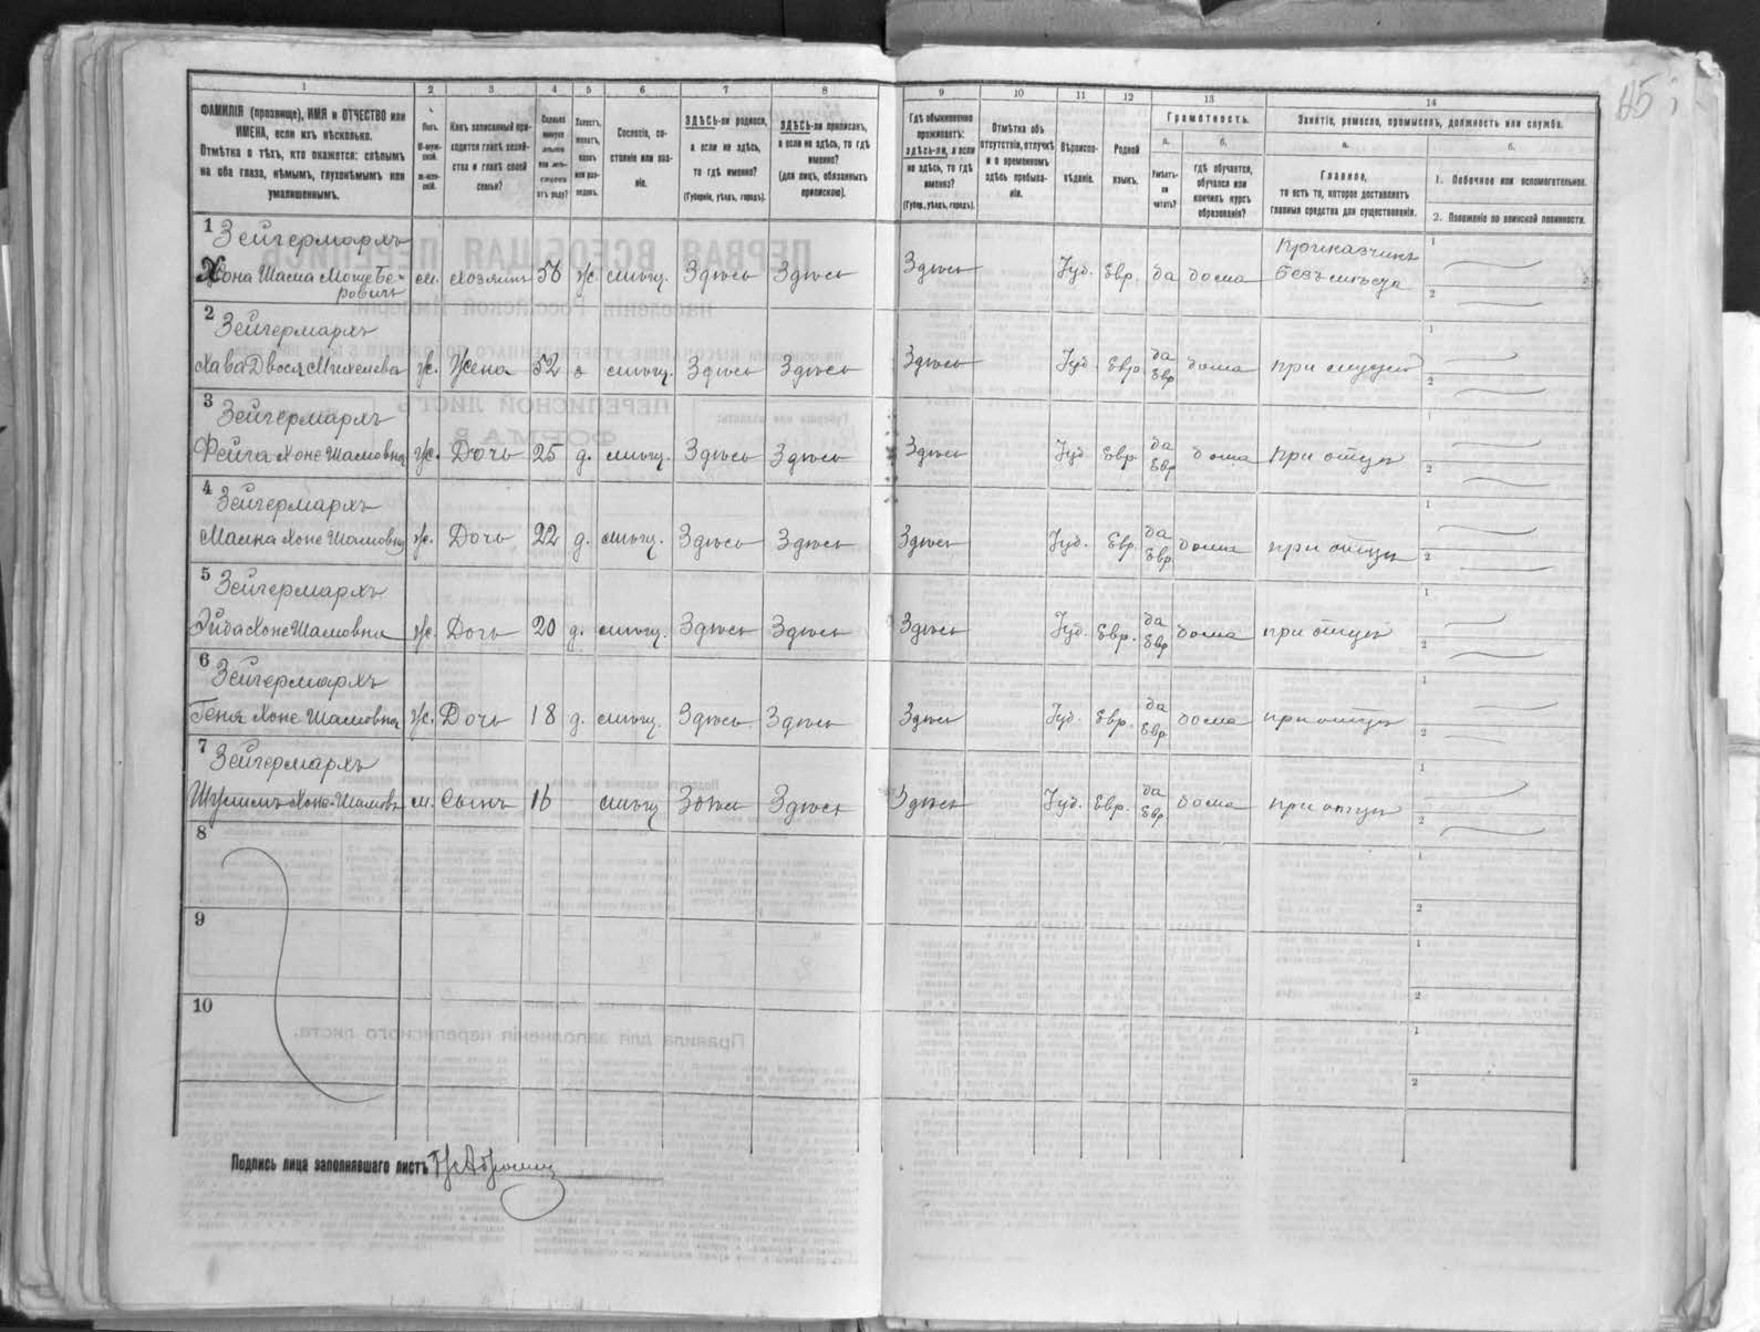 45
1 2 3 4 5 6 7 8 9 10 11 12 13 14
ФАМИЛІЯ (прозвище), ИМЯ и ОТЧЕСТВО или
ИМЕНА, если ихъ нѣсколько.
Отмѣтка о тѣхъ, кто окажется: слѣпымъ
на оба глаза, нѣмымъ, глухонѣмымъ или
умалишеннымъ.
Полъ.
Какъ записанный при-
ходится главѣ хозяй-
ства и главѣ своей
семьи?
Сословіе, со-
стояніе или зва-
ніе.
ЗДѢСЬ-ли родился,
а если не здѣсь,
то гдѣ именно?
(Губернія, уѣздъ, городъ).
ЗДѢСЬ-ли приписанъ,
а если не здѣсь, то гдѣ
именно?
(для лицъ, обязанныхъ
припискою).
Гдѣ обыкновенно
проживаетъ:
здѣсь-ли, а если
не здѣсь, то гдѣ
именно?
(Губер., уѣздъ, городъ).
Отмѣтка объ
отсутствіи, отлучкѣ
и о временномъ
здѣсь пребыва-
ніи.
Вѣроиспо-
вѣданіе.
Родной
языкъ.
Грамотность.
а.
Умѣетъ-
ли
читать?
б.
гдѣ обучается,
обучался или
кончилъ курсъ
образованія?
Занятіе, ремесло, промыселъ, должность или служба.
а.
Главное,
то есть то, которое доставляетъ
главныя средства для существованія.
б.
1. Побочное или вспомогательное.
2. Положеніе по воинской повинности.
1 Зейгермархъ
Хона Шама Моше Бе-
ровичъ м. хозяинъ 56 ж. мѣщ. Здѣсь Здѣсь Здѣсь Іуд. Евр. да дома Приказчикъ
безъ мѣста 1 2
2 Зейгермархъ
Хава Двося Михелева ж. Жена 52 з мѣщ. Здѣсь Здѣсь Здѣсь Іуд Евр. да Евр дома при мужѣ 1 2
3 Зейгермархъ
Фейга Хоне Шамовна ж. Дочь 25 д. мѣщ. Здѣсь Здѣсь Здѣсь Іуд Евр да Евр дома при отцѣ 1 2
4 Зейгермархъ
Малка Хоне Шамовна ж. Дочь 22 д. мѣщ. Здѣсь Здѣсь Здѣсь Іуд. Евр. да Евр. дома при отцѣ 1 2
5 Зейгермархъ
Хоне Шамовна ж. Дочь 20 д. мѣщ. Здѣсь Здѣсь Здѣсь Іуд. Евр. да Евр дома при отцѣ 1 2
6 Зейгермархъ
Геня Хоне Шамовна ж. Дочь 18 д. мѣщ. Здѣсь Здѣсь Здѣсь Іуд. Евр. да Евр дома при отцѣ 1 2
7 Зейгермархъ
Хоне-Шамовъ м. Сынъ 16 мѣщ Здѣсь Здѣсь Здѣсь Іуд. Евр. да Евр дома при отцѣ 1 2
8 1 2
9 1 2
10 1 2
Подпись лица заполнявшаго листъ